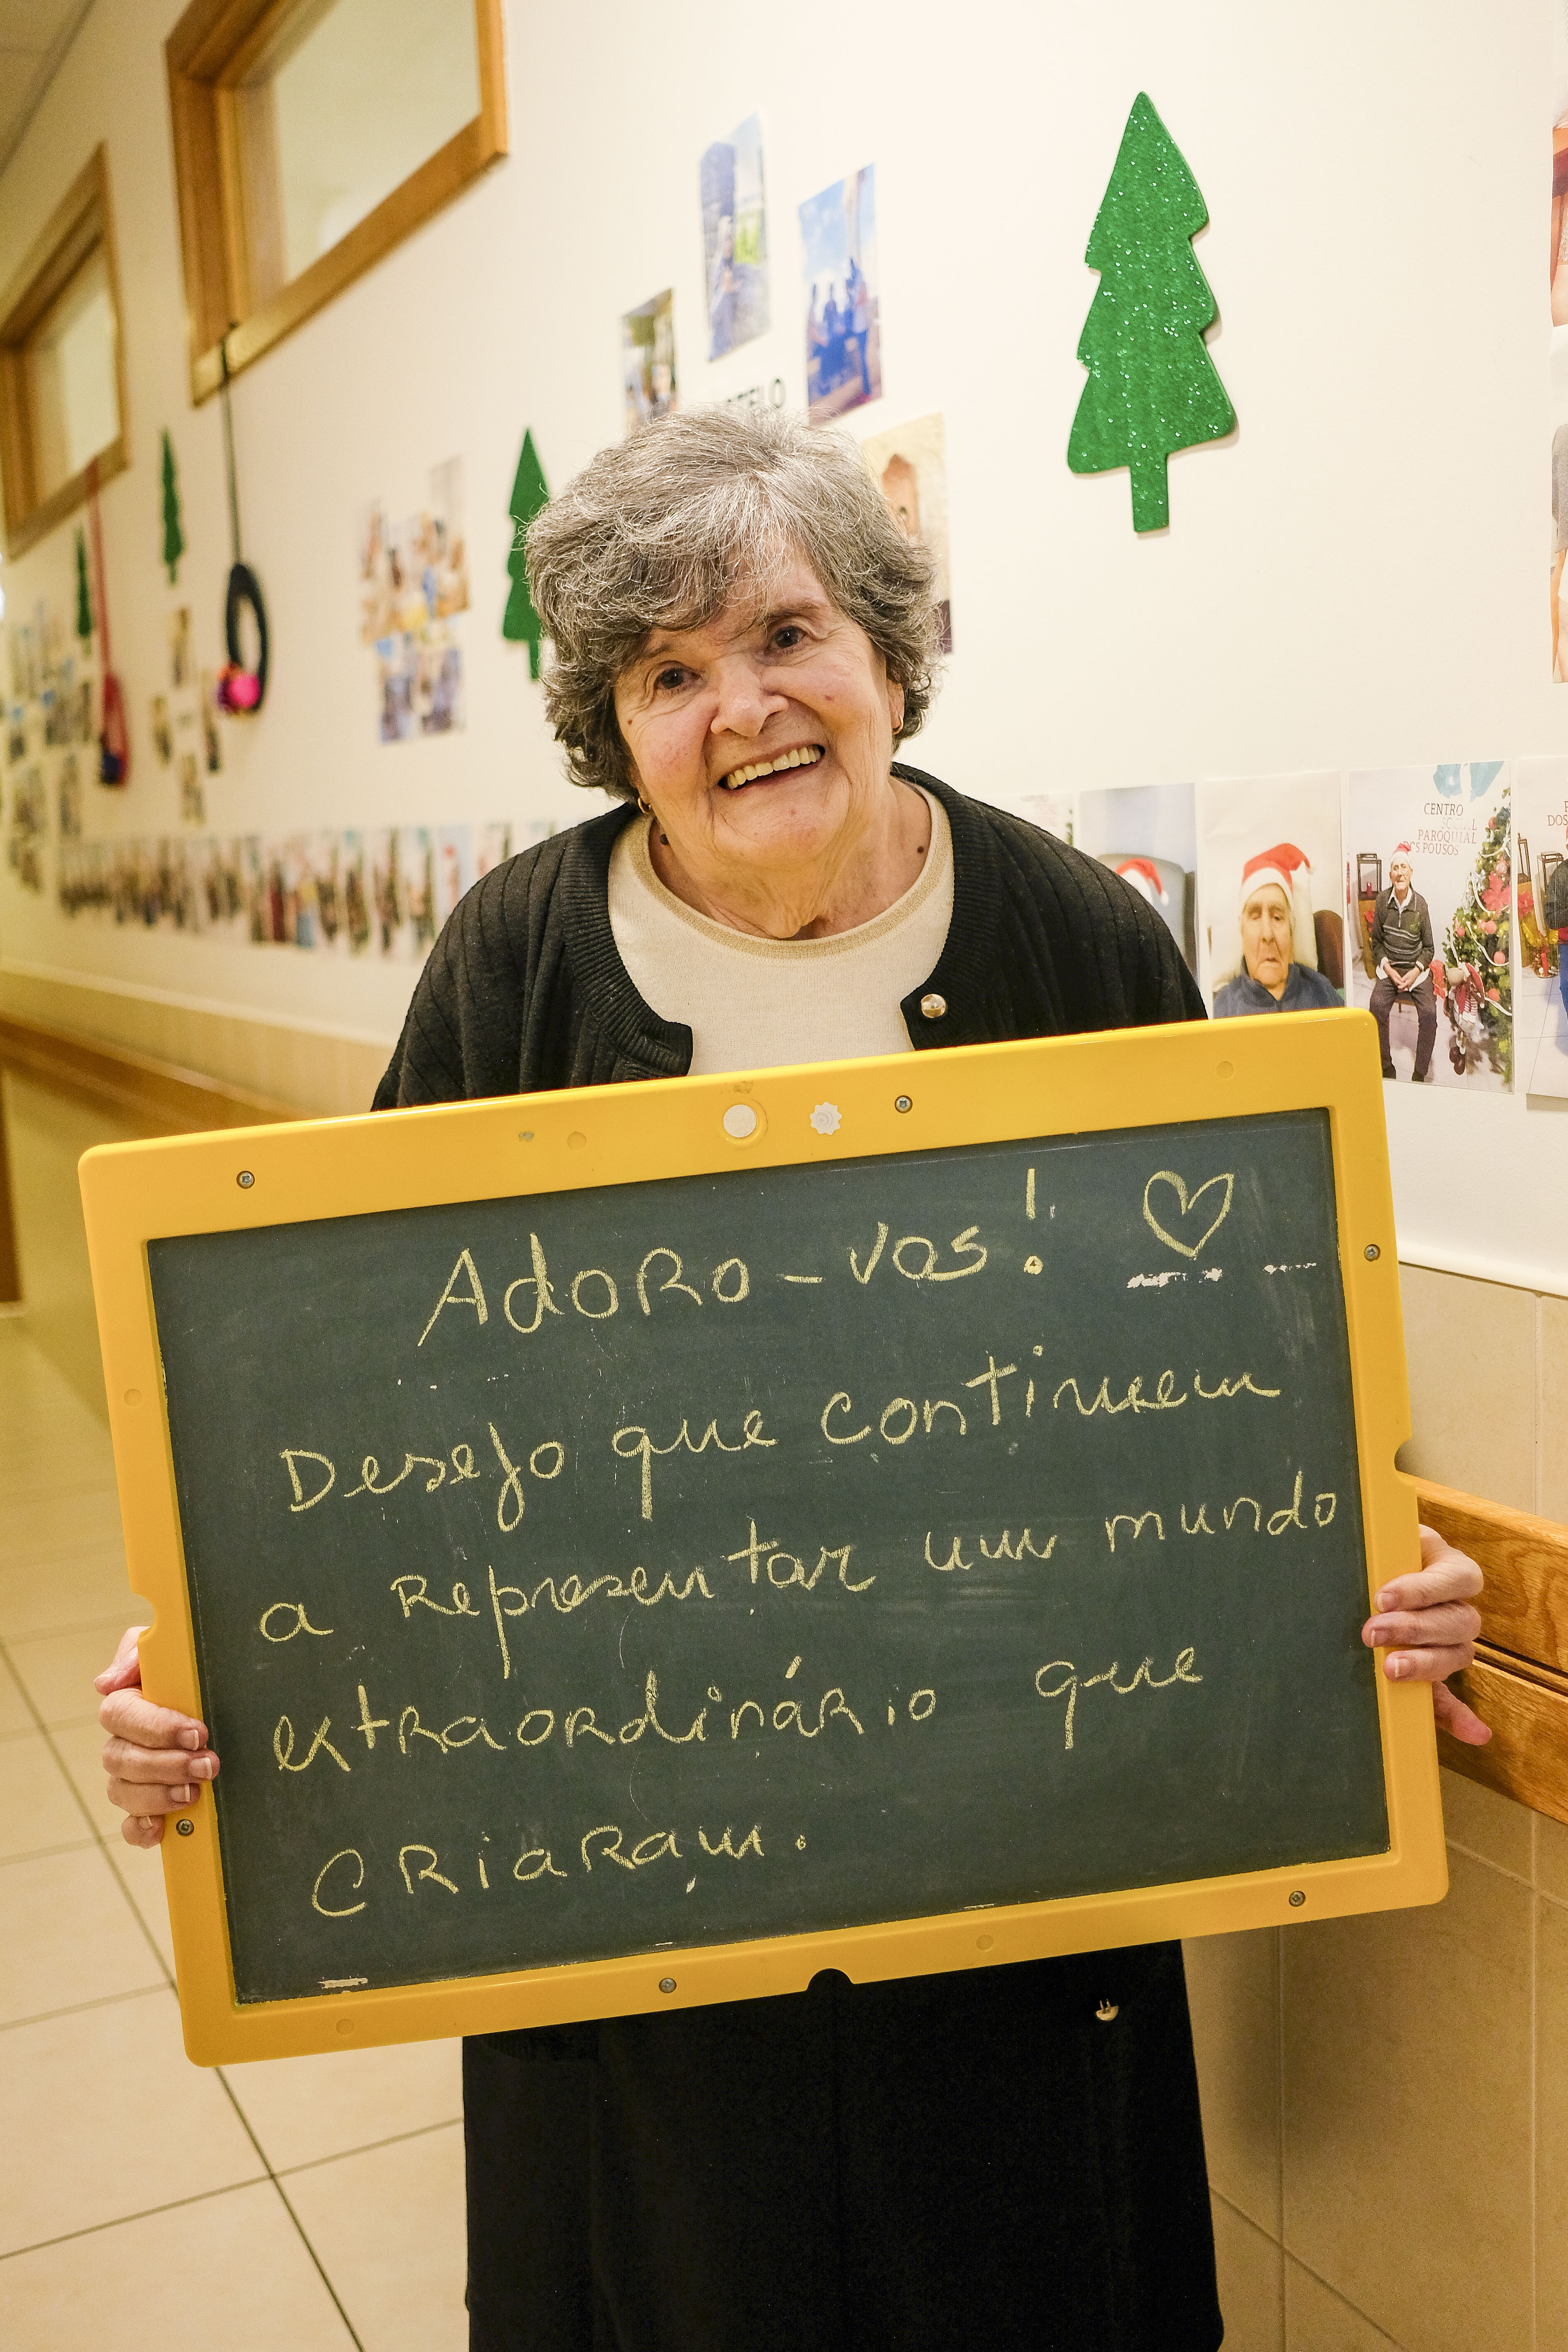 Adoro-vos!
Desejo que continuem
a representar um mundo
extraordinário que
criaram.
CENTRO
SOCIAL
PAROQUIAL
DOS POUSOS